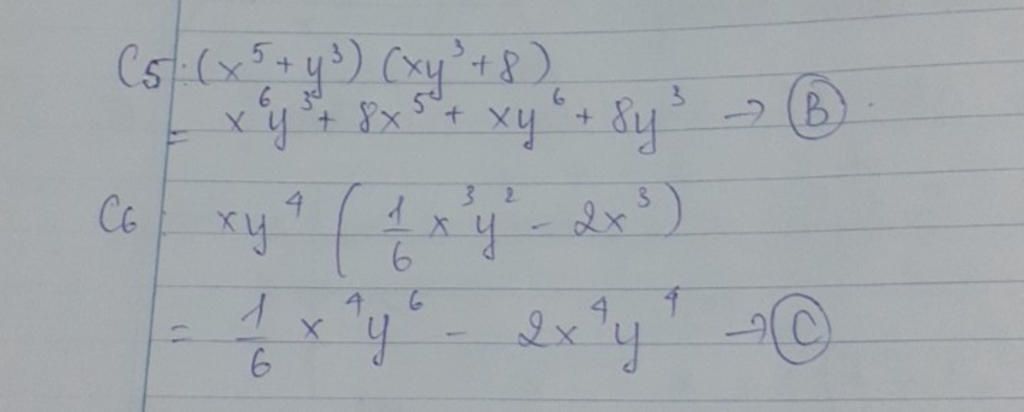 C5: (x⁵ + y³) (xy³ + 8)
= x⁶y³ + 8x⁵ + xy⁶ + 8y³ → B
C6: xy⁴ ( 1/6 x³y² - 2x³ )
= 1/6 x⁴y⁶ - 2x⁴y⁴ → C